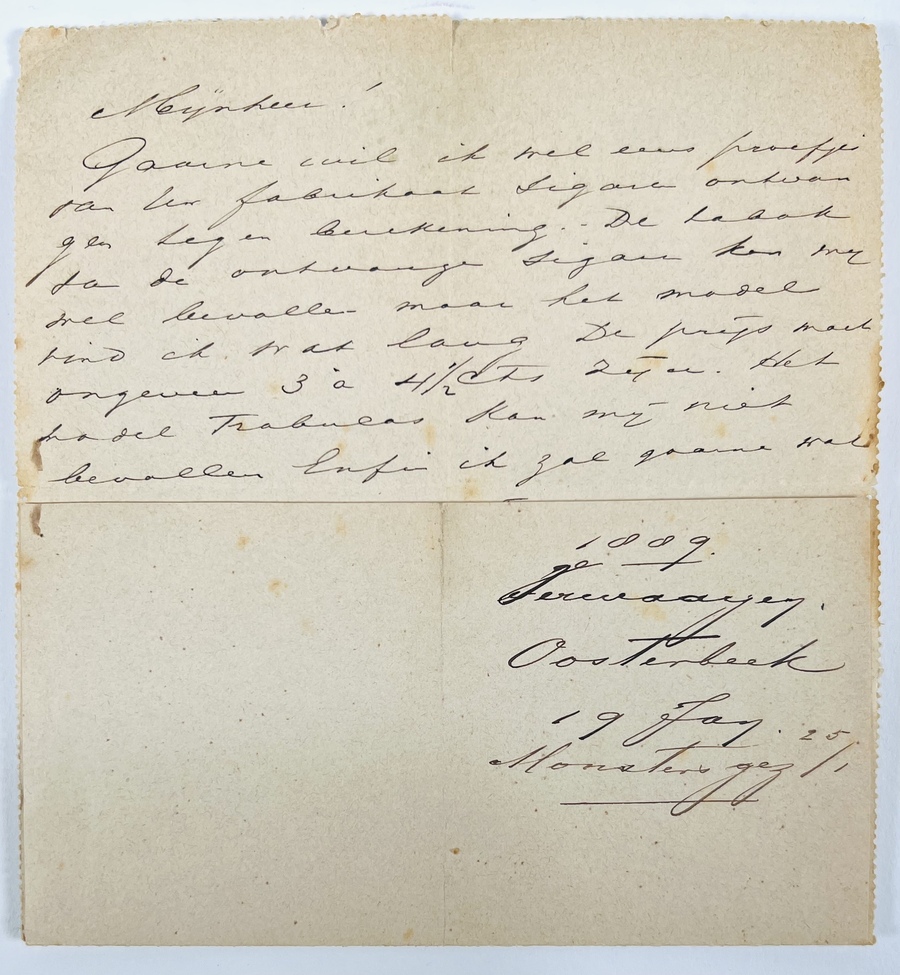 Mijnheer!
Gaarne wil ik wel eens proefjes
van Uw fabrikaat sigaren ontvan
gen tegen berekening. - De tabak
de ontvange sigare kon mij
wel bevalle maar het model
vind ik wat lang De prijs moet
ongeveer 3 a 4 1/2 Cts zijn. Het
model Trabucos kan mij niet
bevallen Enfin ik zal gaarne wat
1889.
Terwaayen.
Oosterbeek
19 Jay.
Monsters gez 25/1